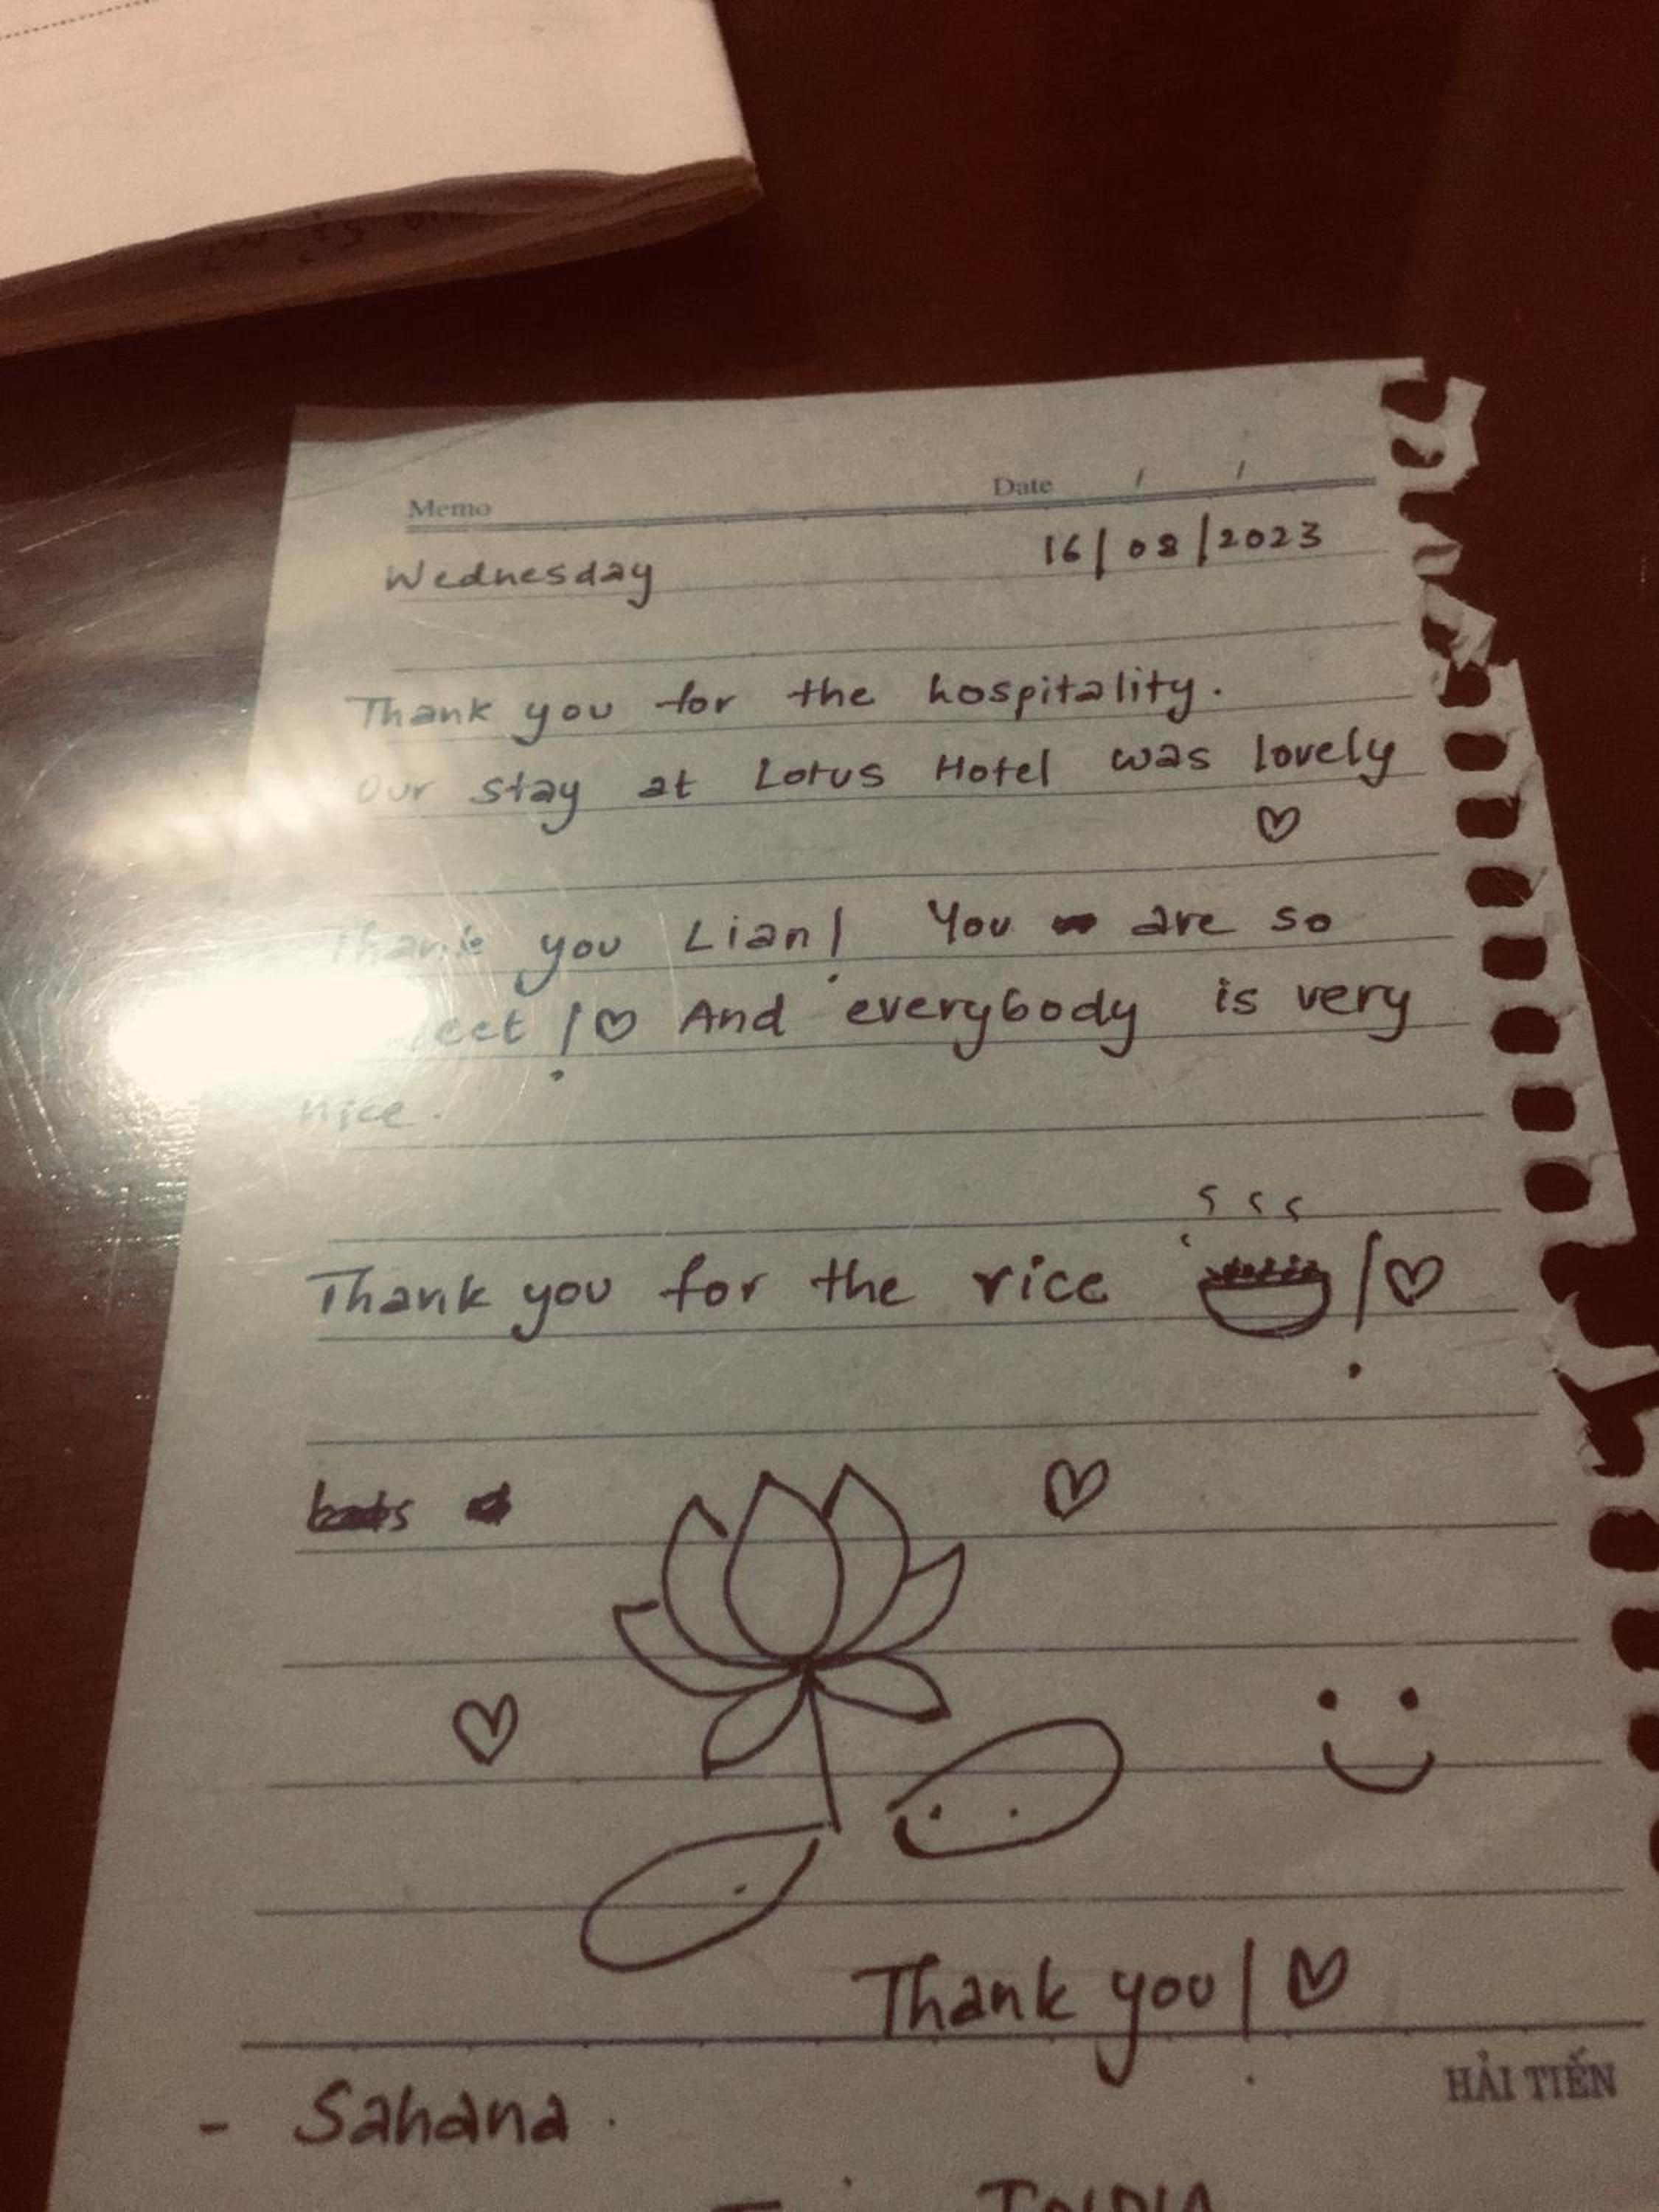 Memo Date / /
Wednesday 16/08/2023
Thank you for the hospitality.
Our stay at Lotus Hotel was lovely ♡
Thank you Lian! You are so
sweet! ♡ And everybody is very
nice.
Thank you for the rice ! ♡
Thank you! ♡
HẢI TIẾN
- Sahana.
INDIA